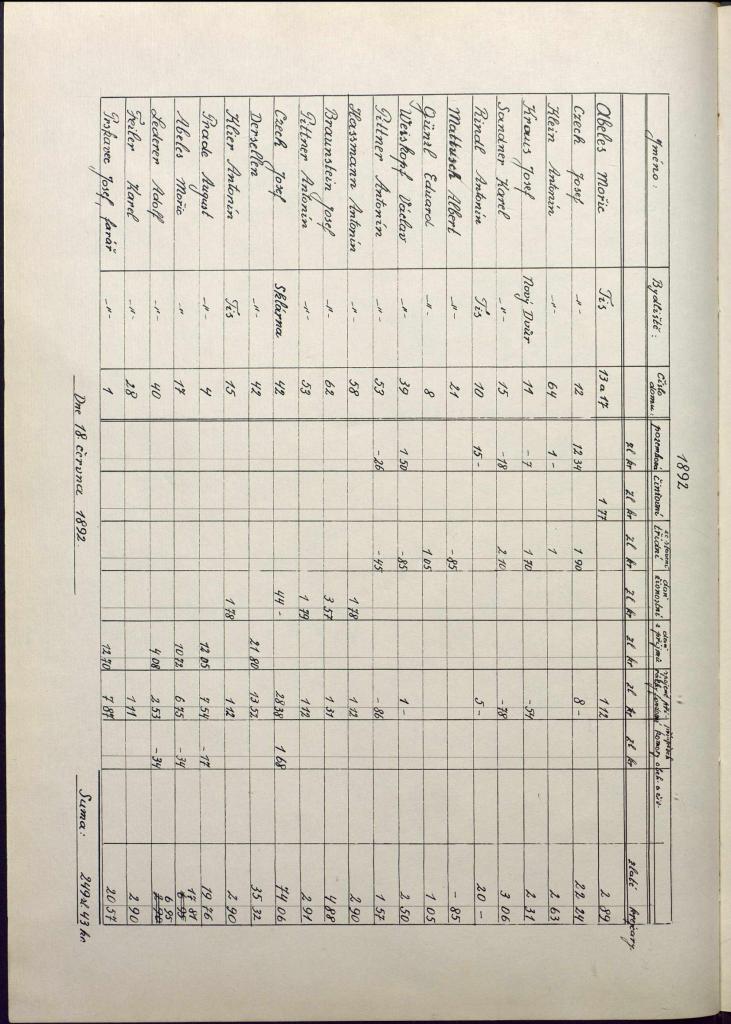 1892
Jméno: Bydliště: Číslo domu: pozemková činžovní třídní živnostní z příjmů
zl kr zl kr zl kr zl kr zl kr zl kr zl kr zlatí krejcary
Abeles Mořic Tis 13 a 17 1 77 1 12 2 89
Czech Josef -"- 12 12 34 1 90 8 - 22 24
Klein Antonín -"- 64 1 - 1 2 63
Kraus Josef Nový Dvůr 11 - 7 1 70 - 54 2 31
Sandner Karel -"- 15 - 18 2 10 - 78 3 06
Rindl Antonín Tis 10 15 - 5 - 20 -
Mattusch Albert -"- 21 - 85 - 85
Günzl Eduard -"- 8 1 05 1 05
Weiskopf Václav -"- 39 1 50 - 85 1 - 2 50
Pittner Antonín -"- 53 - 26 - 45 - 86 1 57
Hassmann Antonín -"- 58 1 78 1 12 2 90
Braunstein Josef -"- 62 3 57 1 31 4 88
Pittner Antonín -"- 53 1 79 1 12 2 91
Czech Josef Sklárna 42 44 - 28 38 1 68 74 06
Dersellen -"- 42 21 80 13 52 35 32
Klier Antonín Tis 15 1 78 1 12 2 90
Prade August -"- 4 12 05 7 54 - 17 19 76
Abeles Mořic -"- 17 10 72 6 75 - 34 17 81
Lederer Adolf -"- 40 4 08 2 53 - 34 6 95
Feiler Karel -"- 28 1 11 2 90
Prspavec Josef, farář -"- 1 12 70 7 87 20 57
Dne 18 června 1892. Suma: 249 zl 43 kr